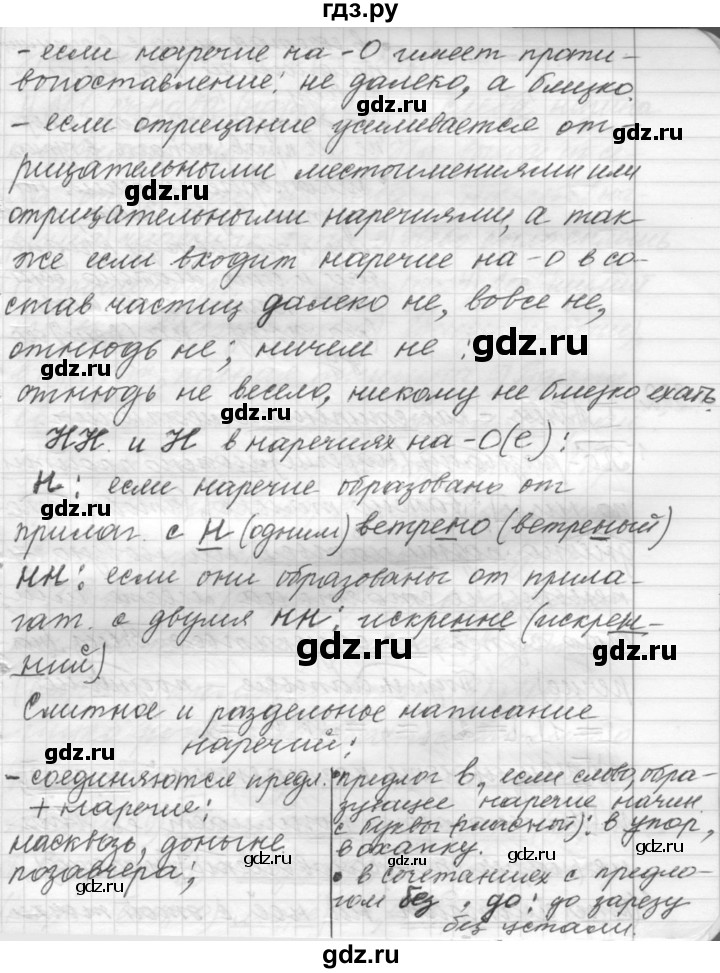 гдз.ру
- если наречие на -О имеет проти-
вопоставление: не далеко, а близко.
gdz.ru gdz.ru
- если отрицание усиливается от-
рицательными местоимениями или
gdz.ru
отрицательными наречиями, а так-
же если входит наречие на -о в со-
став частиц далеко не, вовсе не,
отнюдь не; ничем не :
gdz.ru gdz.ru
отнюдь не весело, никому не близко ехать.
gdz.ru
НН и Н в наречиях на -О(е):
Н: если наречие образовано от
gdz.ru
прилаг. с Н (одним) ветрено (ветреный)
gdz.ru
нн: если они образованы от прила-
гат. с двумя нн: искренне (искрен-
gdz.ru gdz.ru
ний)
Слитное и раздельное написание
наречий:
gdz.ru gdz.ru
- соединяются предл.
+ наречие:
насквозь, доныне
gdz.ru
позавчера;
• предлог в, если слово, обра-
зующее наречие начин
с буквы (гласной): в упор,
gdz.ru
в охапку.
gdz.ru
• в сочетаниях с предло-
гом без, до: до зарезу
без устали.
gdz.ru